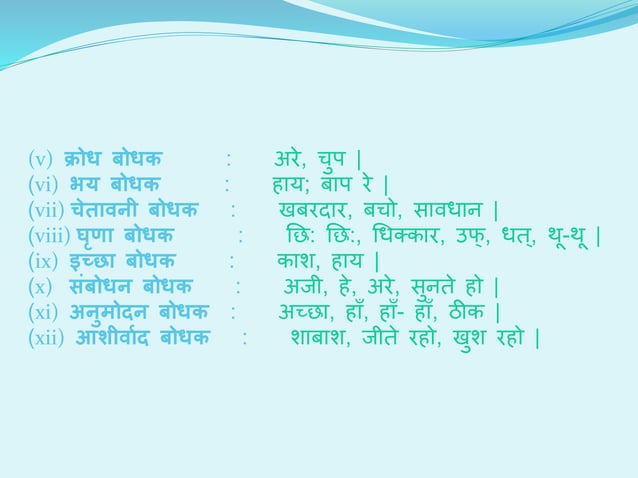 (v) क्रोध बोधक : अरे, चुप |
(vi) भय बोधक : हाय; बाप रे |
(vii) चेतावनी बोधक : खबरदार, बचो, सावधान |
(viii) घृणा बोधक : छि: छि:, धिक्कार, उफ्, धत्, थू-थू |
(ix) इच्छा बोधक : काश, हाय |
(x) संबोधन बोधक : अजी, हे, अरे, सुनते हो |
(xi) अनुमोदन बोधक : अच्छा, हाँ, हाँ- हाँ, ठीक |
(xii) आशीर्वाद बोधक : शाबाश, जीते रहो, खुश रहो |